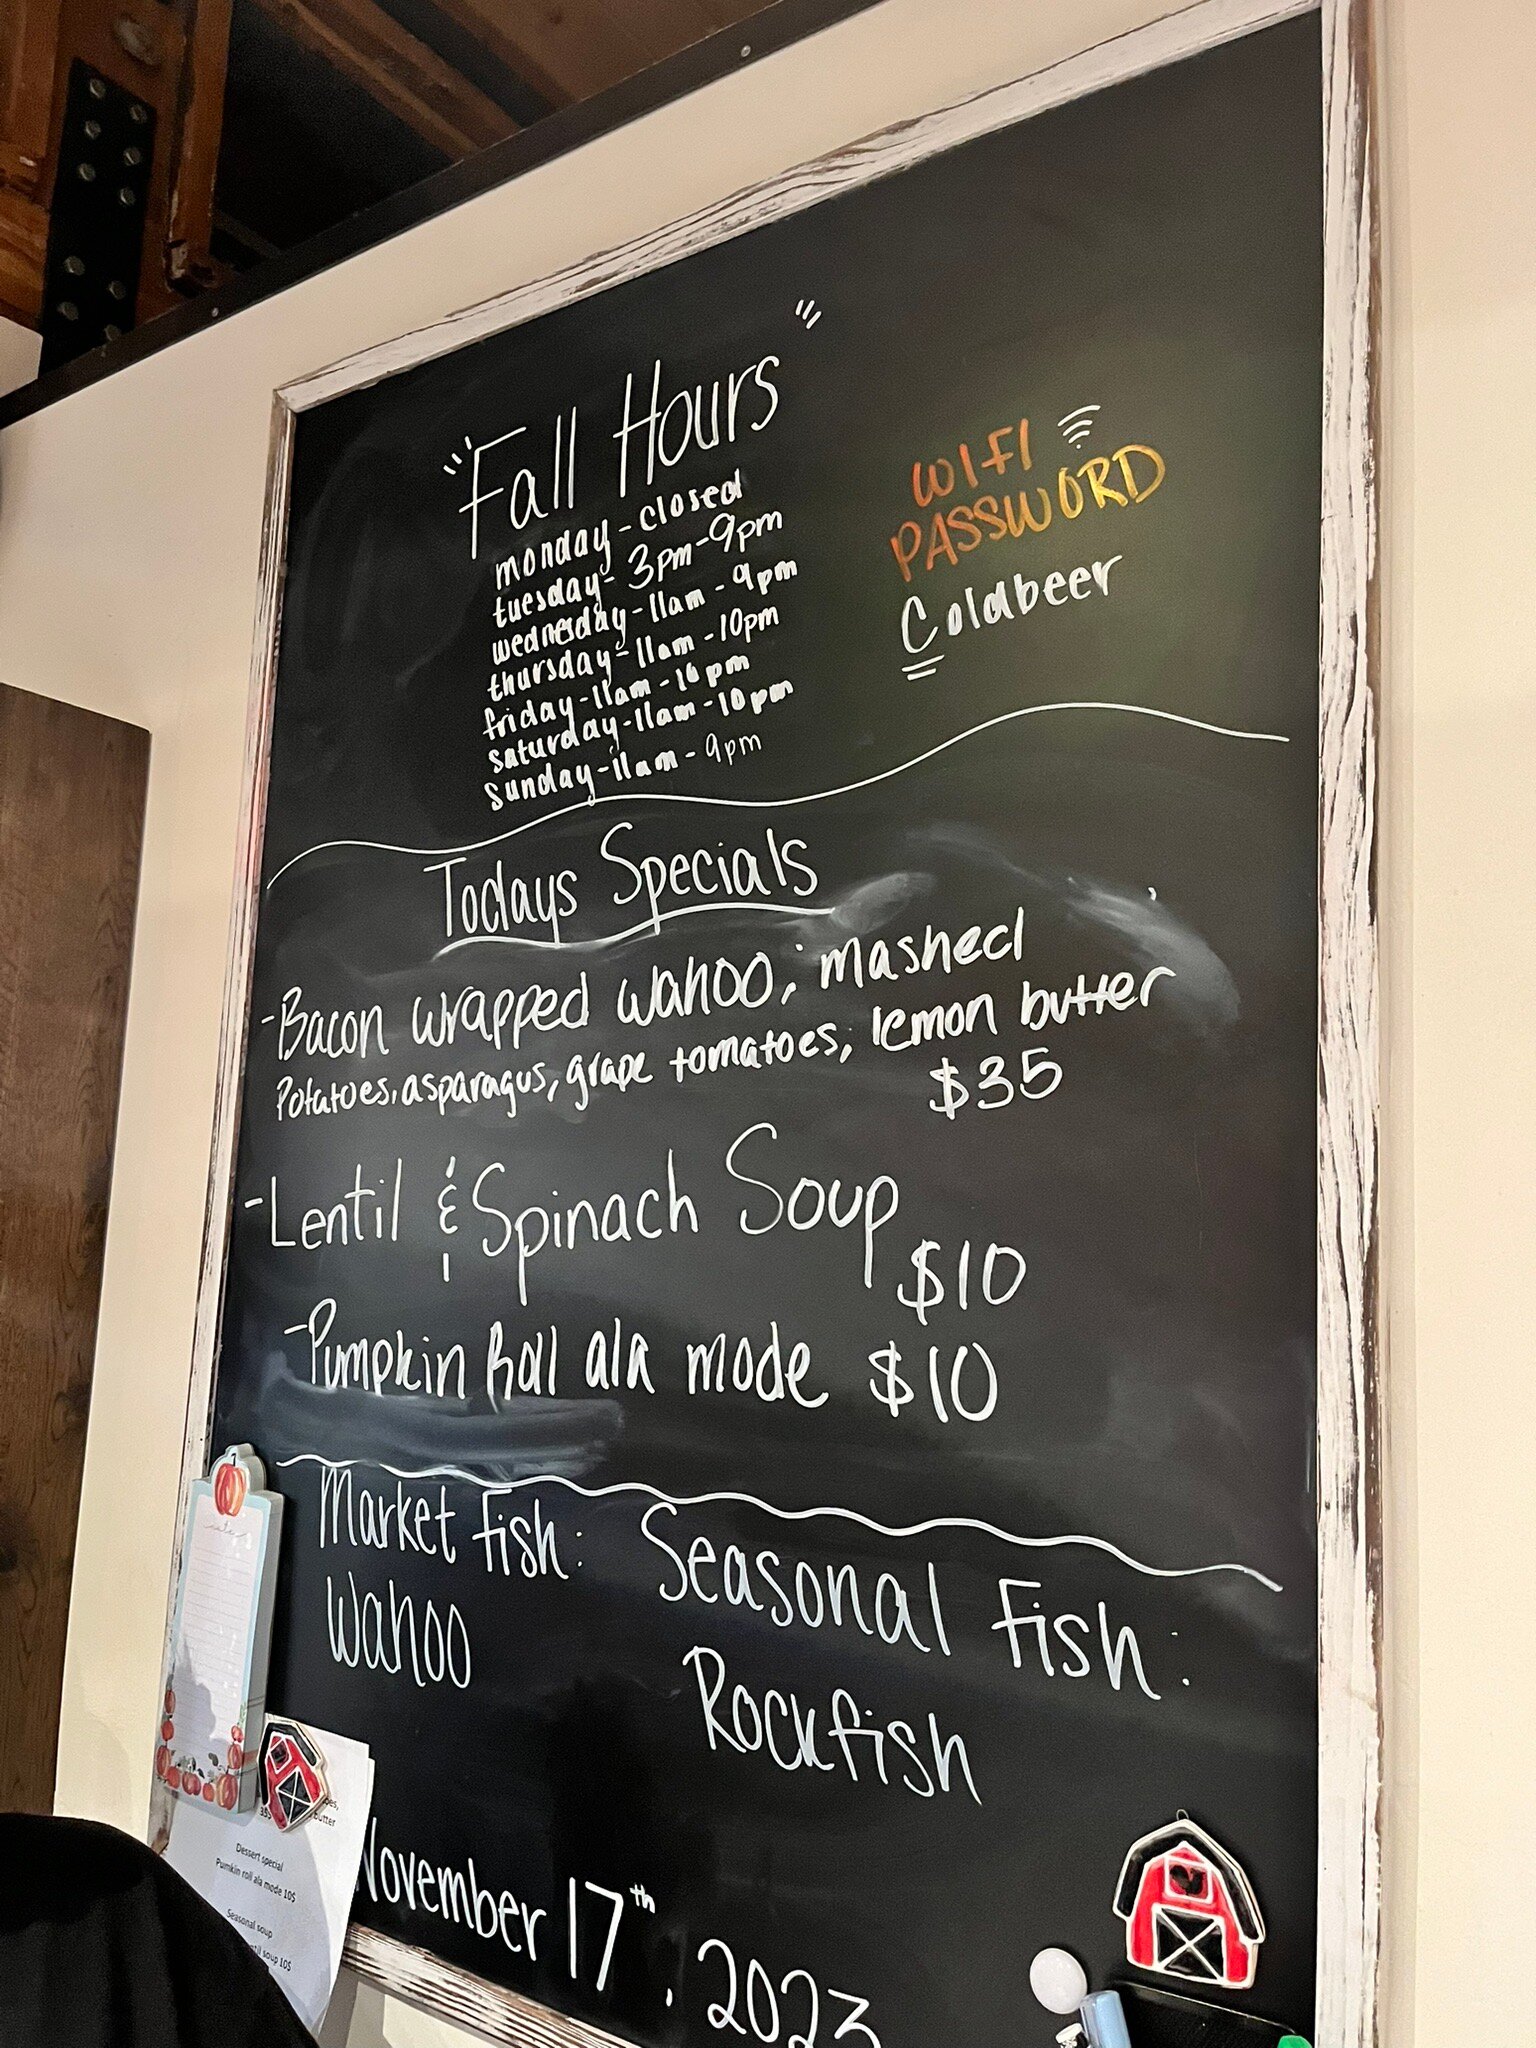 "Fall Hours"
monday - closed
tuesday - 3pm - 9pm
wednesday - 11am - 9pm
thursday - 11am - 10pm
friday - 11am - 10pm
saturday - 11am - 10pm
sunday - 11am - 9pm
WIFI
PASSWORD
Coldbeer
Todays Specials
- Bacon wrapped wahoo; mashed
Potatoes, asparagus, grape tomatoes, lemon butter
$35
- Lentil & Spinach Soup
$10
- Pumpkin Roll ala mode $10
Market Fish:
Wahoo
Seasonal Fish:
Rockfish
November 17th, 2023
Dessert special
Pumkin roll ala mode 10$
Seasonal soup
soup 10$